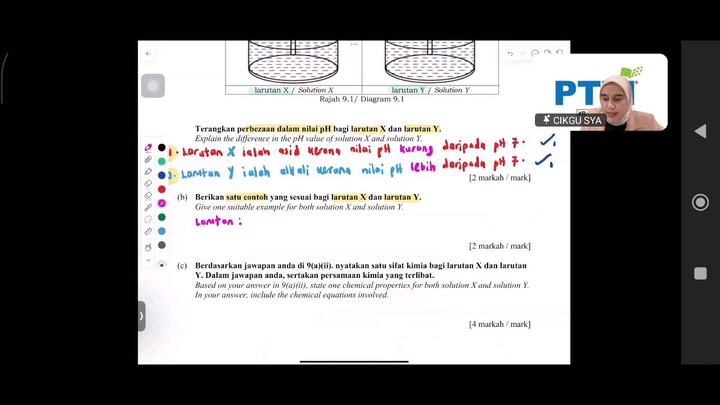 larutan X / Solution X
larutan Y / Solution Y
Rajah 9.1/ Diagram 9.1
PT
CIKGU SYA
Terangkan perbezaan dalam nilai pH bagi larutan X dan larutan Y.
Explain the difference in the pH value of solution X and solution Y.
1. Larutan X ialah asid kerana nilai pH kurang daripada pH 7.
2. Larutan Y ialah alkali kerana nilai pH lebih daripada pH 7.
[2 markah / mark]
(b) Berikan satu contoh yang sesuai bagi larutan X dan larutan Y.
Give one suitable example for both solution X and solution Y.
Larutan :
[2 markah / mark]
(c) Berdasarkan jawapan anda di 9(a)(ii). nyatakan satu sifat kimia bagi larutan X dan larutan
Y. Dalam jawapan anda, sertakan persamaan kimia yang terlibat.
Based on your answer in 9(a)(ii), state one chemical properties for both solution X and solution Y.
In your answer, include the chemical equations involved.
[4 markah / mark]